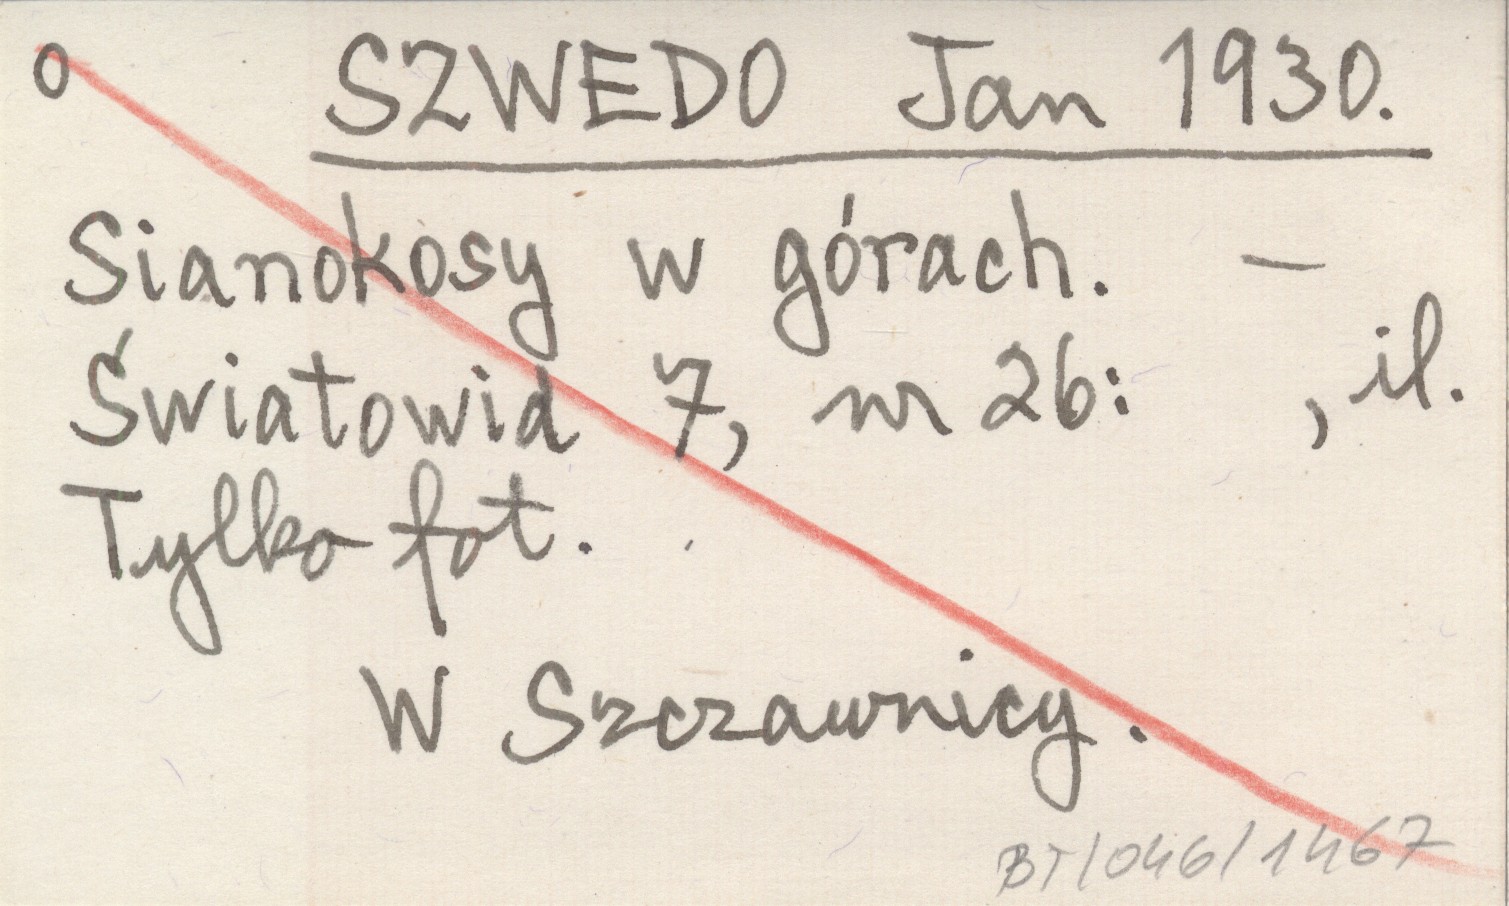 o SZWEDO Jan 1930.
Sianokosy w górach. –
Światowid 7, nr 26: , il.
Tylko fot.
W Szczawnicy.
BT/046/1467